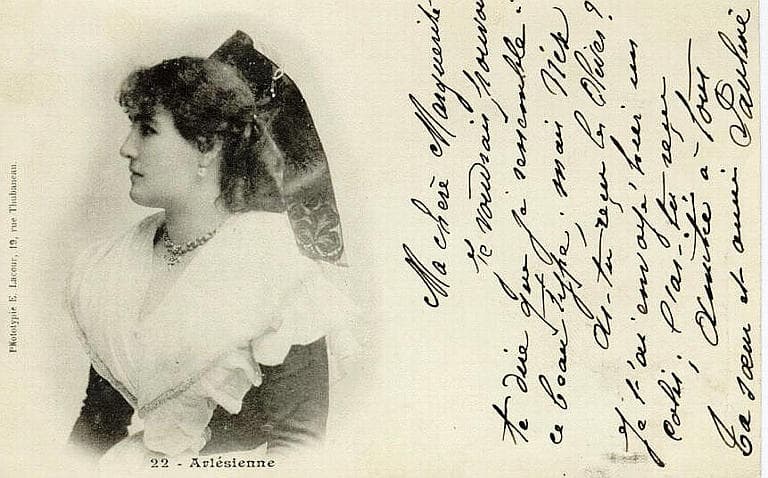 Phototypie E. Lacour, 19, rue Thubaneau.
22 - Arlésienne
Ma chère Marguerite
je voudrais pouvoir
te dire que je ressemble à
ce beau type, mais
as-tu reçu les olives?
Je t'ai envoyé hier un
colis; l'as-tu reçu
Amitié à tous
Ta sœur et amie Pauline